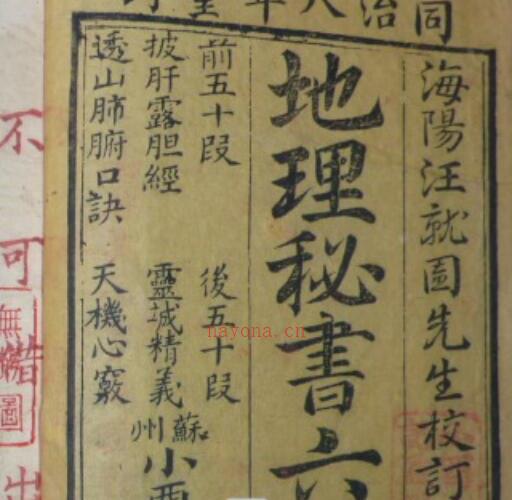 同治八年
海陽汪就園先生校訂
地理秘書六
前五十段 後五十段
披肝露胆經 靈誠精義
透山肺腑口訣 天機心竅
蘇州
小
不可借出
nayona.cn